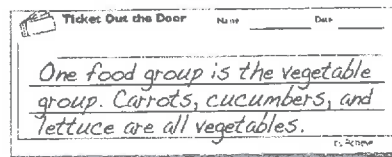 Ticket Out the Door Name Date
One food group is the vegetable
group. Carrots, cucumbers, and
lettuce are all vegetables.